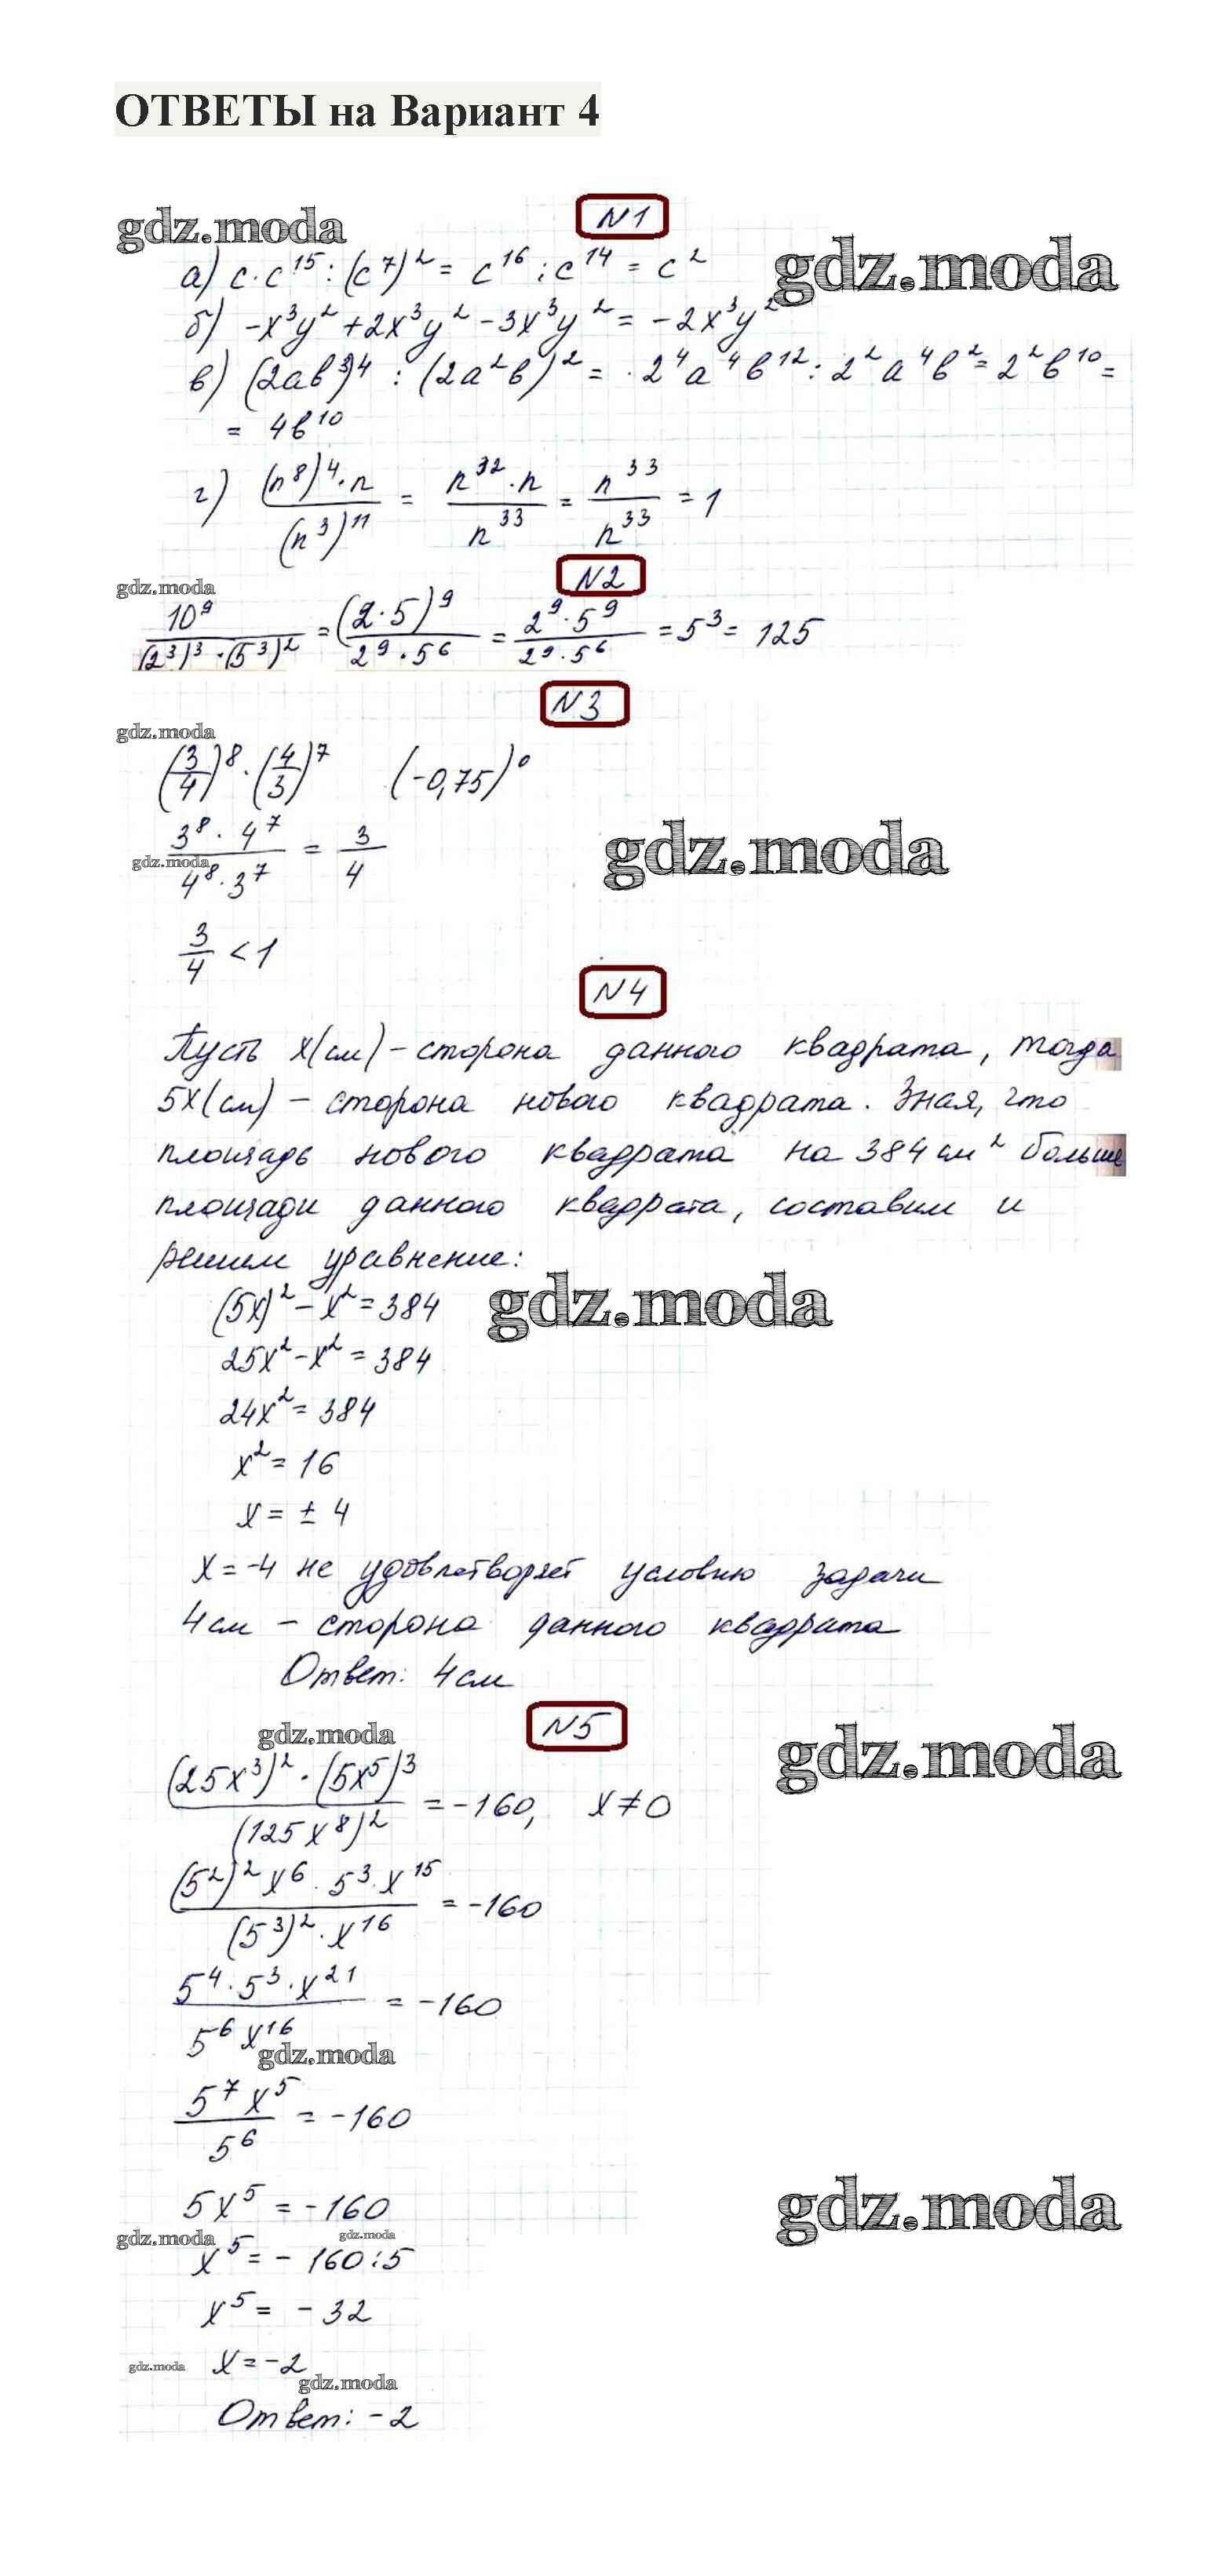 ОТВЕТЫ на Вариант 4
N1
gdz.moda
gdz.moda
а) c·c¹⁵ : (c⁷)² = c¹⁶ : c¹⁴ = c²
б) -x³y² + 2x³y² - 3x³y² = -2x³y²
в) (2ab³)⁴ : (2a²b)² = ·2⁴a⁴b¹² : 2²a⁴b² = 2²b¹⁰ =
= 4b¹⁰
г) (n⁸)⁴·n / (n³)¹¹ = n³²·n / n³³ = n³³ / n³³ = 1
N2
gdz.moda
10⁹ / (2³)³·(5³)² = (2·5)⁹ / 2⁹·5⁶ = 2⁹·5⁹ / 2⁹·5⁶ = 5³ = 125
N3
gdz.moda
(3/4)⁸·(4/3)⁷ (-0,75)⁰
3⁸·4⁷ / 4⁸·3⁷ = 3/4
gdz.moda
gdz.moda
3/4 < 1
N4
Пусть x(см) – сторона данного квадрата, тогда
5x(см) – сторона нового квадрата. Зная, что
площадь нового квадрата на 384 см² больше
площади данного квадрата, составим и
решим уравнение:
(5x)² - x² = 384
gdz.moda
25x² - x² = 384
24x² = 384
x² = 16
x = ± 4
x = -4 не удовлетворяет условию задачи
4 см – сторона данного квадрата
Ответ: 4 см
N5
gdz.moda
gdz.moda
(25x³)²·(5x⁵)³ / (125x⁸)² = -160, x ≠ 0
(5²)²x⁶·5³·x¹⁵ / (5³)²·x¹⁶ = -160
5⁴·5³·x²¹ / 5⁶x¹⁶ = -160
gdz.moda
5⁷x⁵ / 5⁶ = -160
5x⁵ = -160
gdz.moda
gdz.moda
gdz.moda
x⁵ = - 160:5
x⁵ = - 32
gdz.moda
x = -2
gdz.moda
Ответ: -2